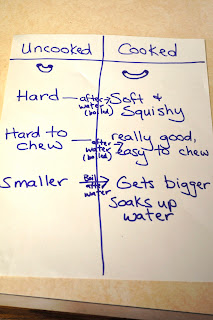 Uncooked Cooked
Hard after water (boiled) Soft &
Squishy
Hard to after water (boiled) really good,
chew easy to chew
Smaller Boil after water Gets bigger
Soaks up
water